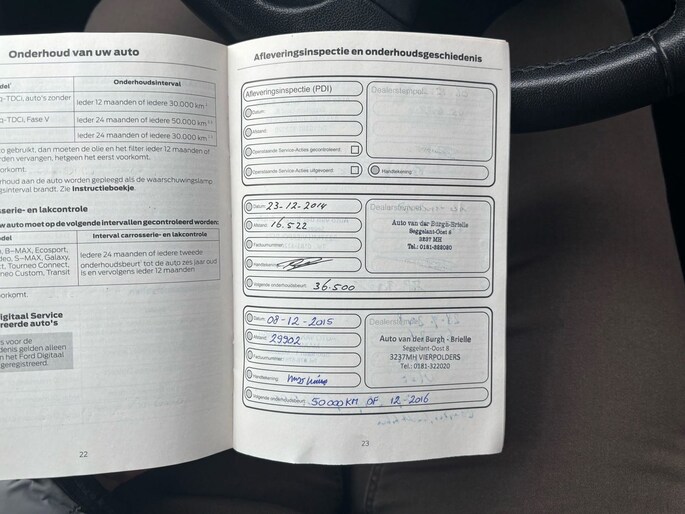 Onderhoud van uw auto
Onderhoudsinterval
q-TDCi, auto's zonder
Ieder 12 maanden of iedere 30.000 km
q-TDCi, Fase V
Ieder 24 maanden of iedere 50.000 km
Ieder 24 maanden of iedere 30.000 km
gebruikt, dan moeten de olie en het filter ieder 12 maanden of
rden vervangen, hetgeen het eerst voorkomt.
orkomt.
erhoud aan de auto worden gepleegd als de waarschuwingslamp
gsinterval brandt. Zie Instructieboekje.
sserie- en lakcontrole
w auto moet op de volgende intervallen gecontroleerd worden:
del
Interval carrosserie- en lakcontrole
, B-MAX, Ecosport,
deo, S-MAX, Galaxy,
ct, Tourneo Connect,
neo Custom, Transit
Iedere 24 maanden of iedere tweede
onderhoudsbeurt tot de auto zes jaar oud
is en vervolgens ieder 12 maanden
oorkomt.
igitaal Service
reerde auto's
s voor de
denis gelden alleen
n het Ford Digitaal
geregistreerd.
22
Afleveringsinspectie en onderhoudsgeschiedenis
Afleveringsinspectie (PDI)
Datum:
Afstand:
Openstaande Service-Acties gecontroleerd:
Openstaande Service-Acties uitgevoerd:
Dealerstempel:
Handtekening:
Datum: 23-12-2014
Afstand: 16.522
Factuurnummer:
Handtekening:
Volgende onderhoudsbeurt: 36.500
Dealerstempel:
Auto van der Burgh-Brielle
Seggelant-Oost 8
3237 MH
Datum: 08-12-2015
Afstand: 29902
Factuurnummer:
Handtekening:
Volgende onderhoudsbeurt: 50000KM OF 12-2016
Dealerstempel:
Auto van der Burgh - Brielle
Seggelant-Oost 8
3237MH VIERPOLDERS
Tel.: 0181-322020
23